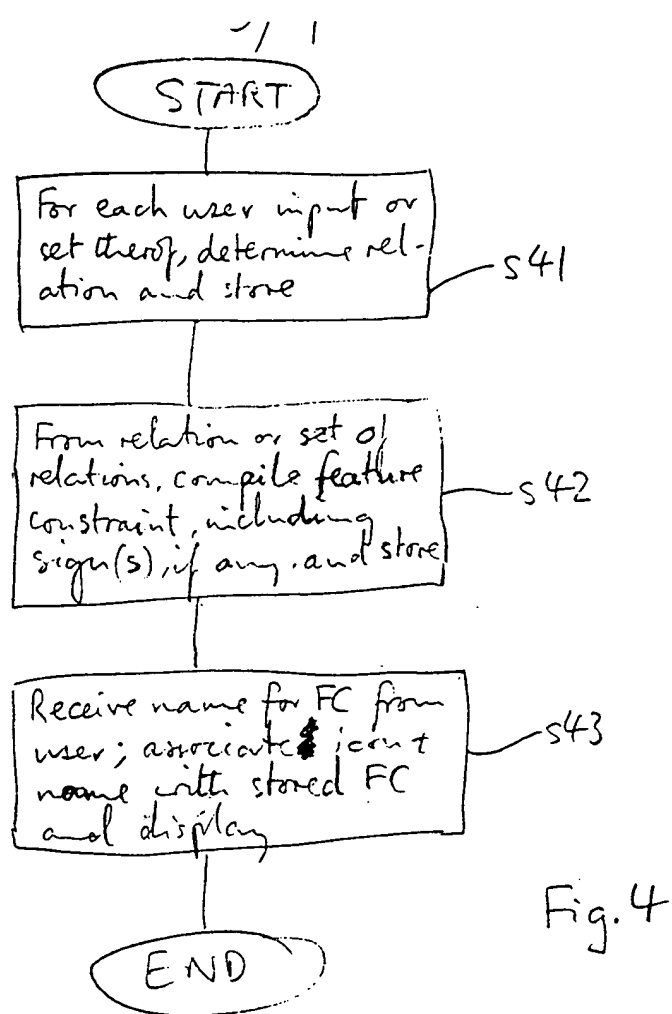 START
For each user input or
set therof, determine rel-
ation and store
s41
From relation or set of
relations, compile feature
constraint, including
sign(s), if any. and store
s42
Receive name for FC from
user; associate icon +
name with stored FC
and display
s43
END
Fig. 4